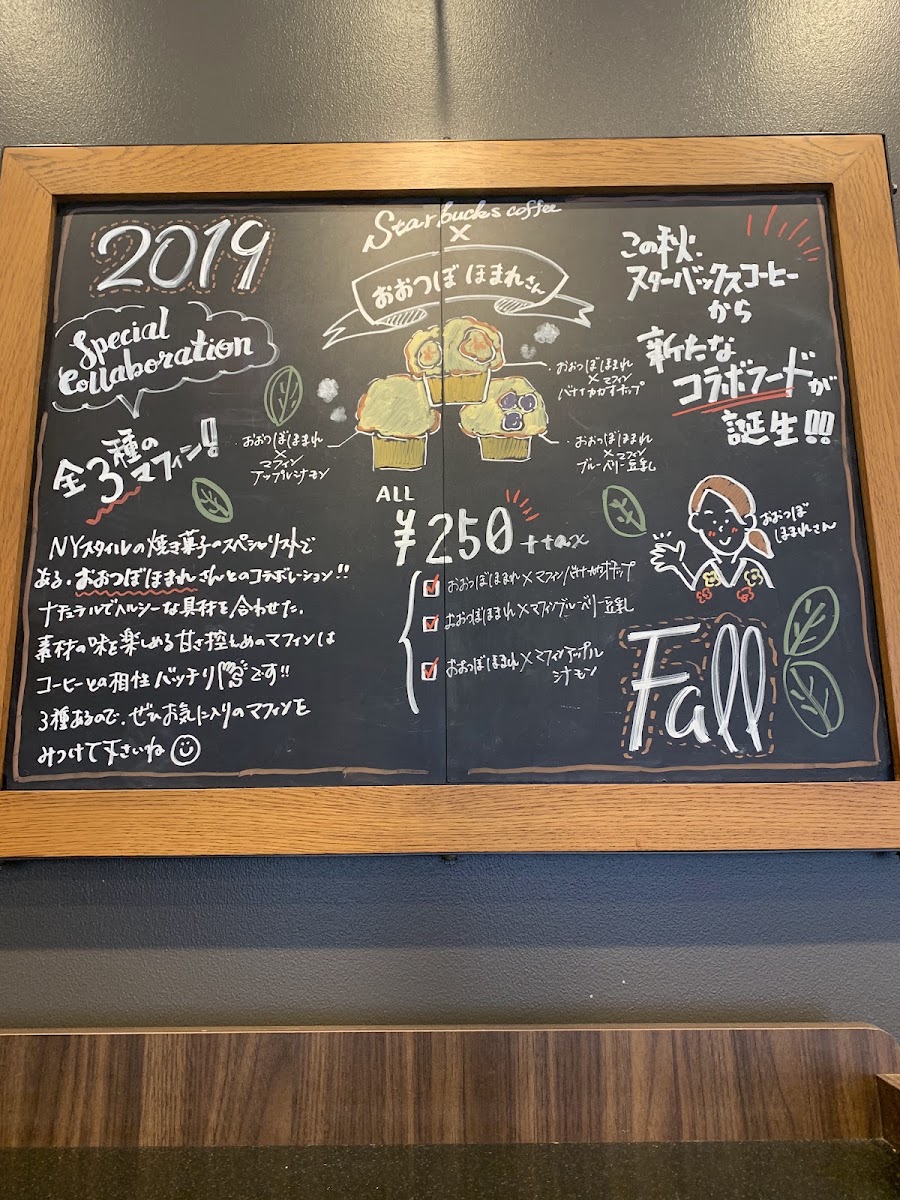 2019
Special
Collaboration
全3種の
マフィン!
Starbucks coffee
×
おおつぼ ほまれさん
おおつぼほまれ
×
マフィン
アップルシナモン
おおつぼほまれ
×マフィン
バナナカカオチップ
おおつぼほまれ
×マフィン
ブルーベリー豆乳
この秋.
スターバックスコーヒー
から
新たな
コラボフードが
誕生!!!
NYスタイルの焼き菓子のスペシャリストで
ある.おおつぼほまれさんとのコラボレーション!!
ナチュラルでヘルシーな具材を合わせた.
素材の味を楽しめる甘さ控えめのマフィンは
コーヒーとの相性バッチリです!!
3種あるので.ぜひお気に入りのマフィンを
みつけて下さいね
ALL
¥250 +tax
おおつぼほまれ×マフィンバナナカカオチップ
おおつぼほまれ×マフィンブルーベリー豆乳
おおつぼほまれ×マフィンアップル
シナモン
おおつぼ
ほまれさん
Fall